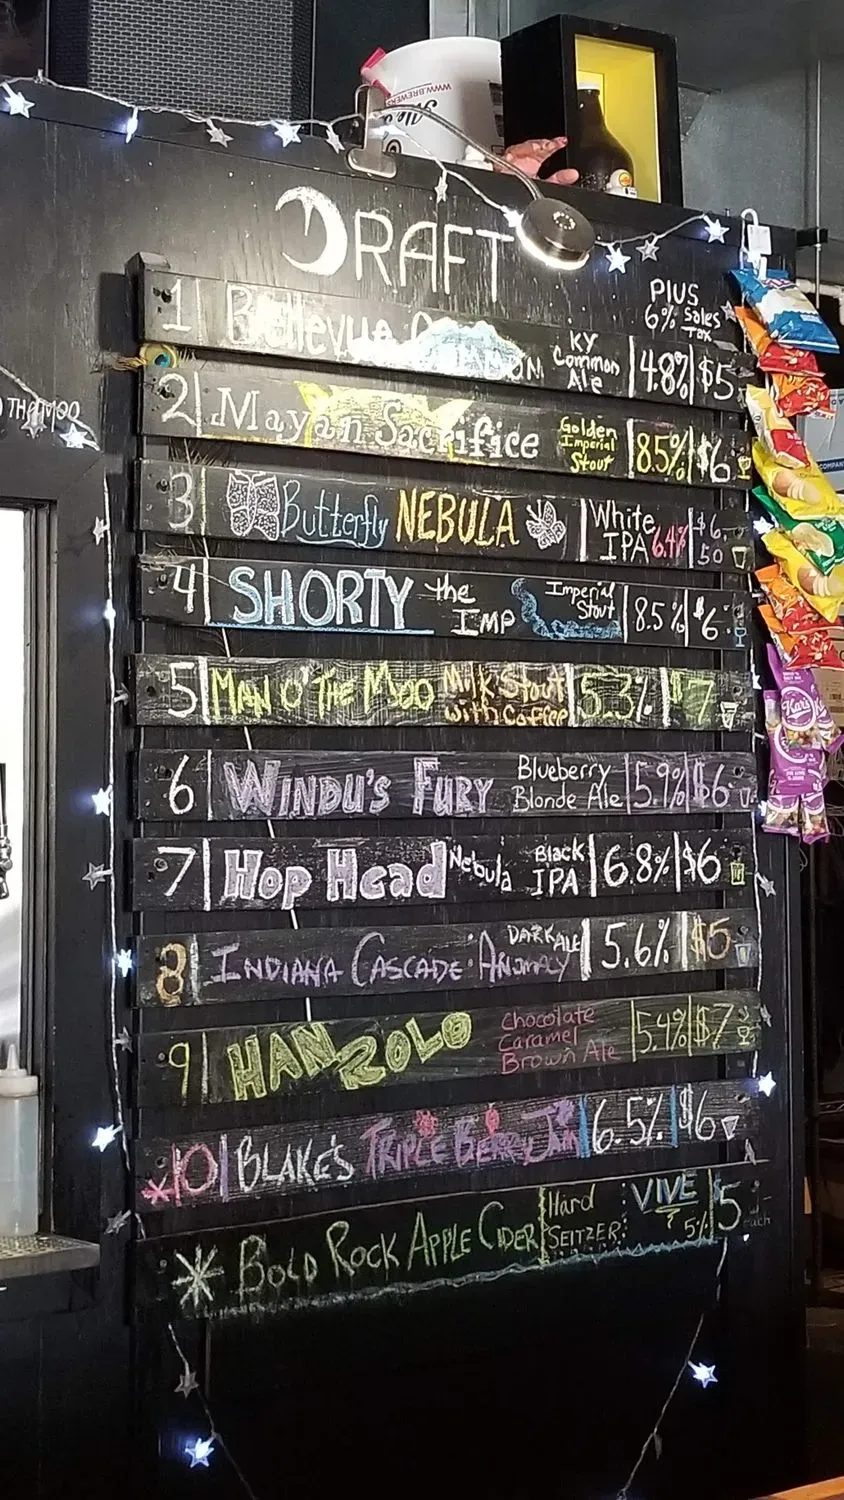 WWW.BREWERS
DRAFT
PLUS
6% Sales
Tax
1 Bellevue
KY
Common
Ale
4.8% $5
2 Mayan Sacrifice
Golden
Imperial
Stout
8.5% $6
THE MOO
3 Butterfly NEBULA
White
IPA
6.4%
$6.
50
4 SHORTY the
IMP
Imperial
Stout
8.5% $6
5 MAN O' THE MOO
Milk Stout
with Coffee
5.3% $7
6 WINDU'S FURY
Blueberry
Blonde Ale
5.9% $6
Kar's
7 Hop Head Nebula
Black
IPA
6.8% $6
8 INDIANA CASCADE ANOMALY
DARK ALE
5.6% $5
9 HAN ROLO
Chocolate
Caramel
Brown Ale
5.4% $7
*10 BLAKE'S TRIPLE BERRY JAM
6.5% $6
* BOLD ROCK APPLE CIDER
Hard
SEITZER:
VIVE
5%
$5
each